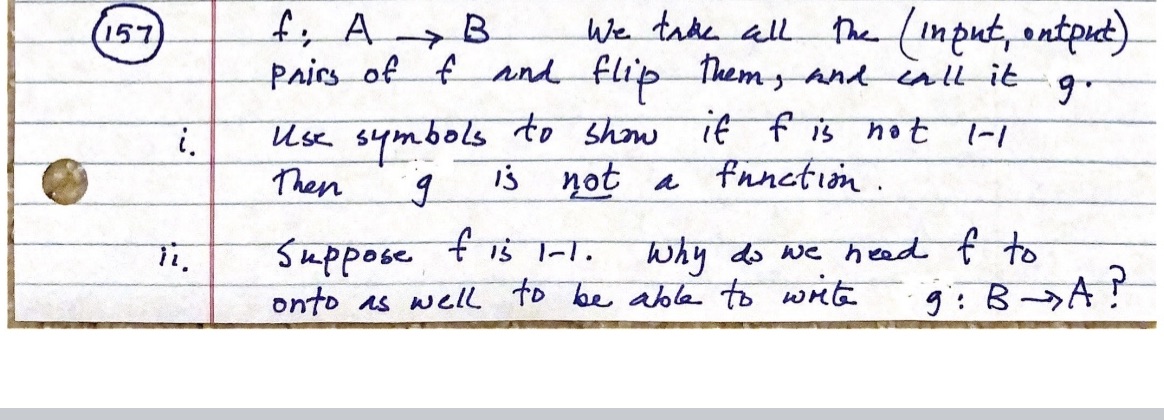 157 f: A → B We take all the (input, output)
pairs of f and flip them, and call it g.
i. Use symbols to show if f is not 1-1
Then g is not a function.
ii. Suppose f is 1-1. Why do we need f to
onto as well to be able to write g: B → A?